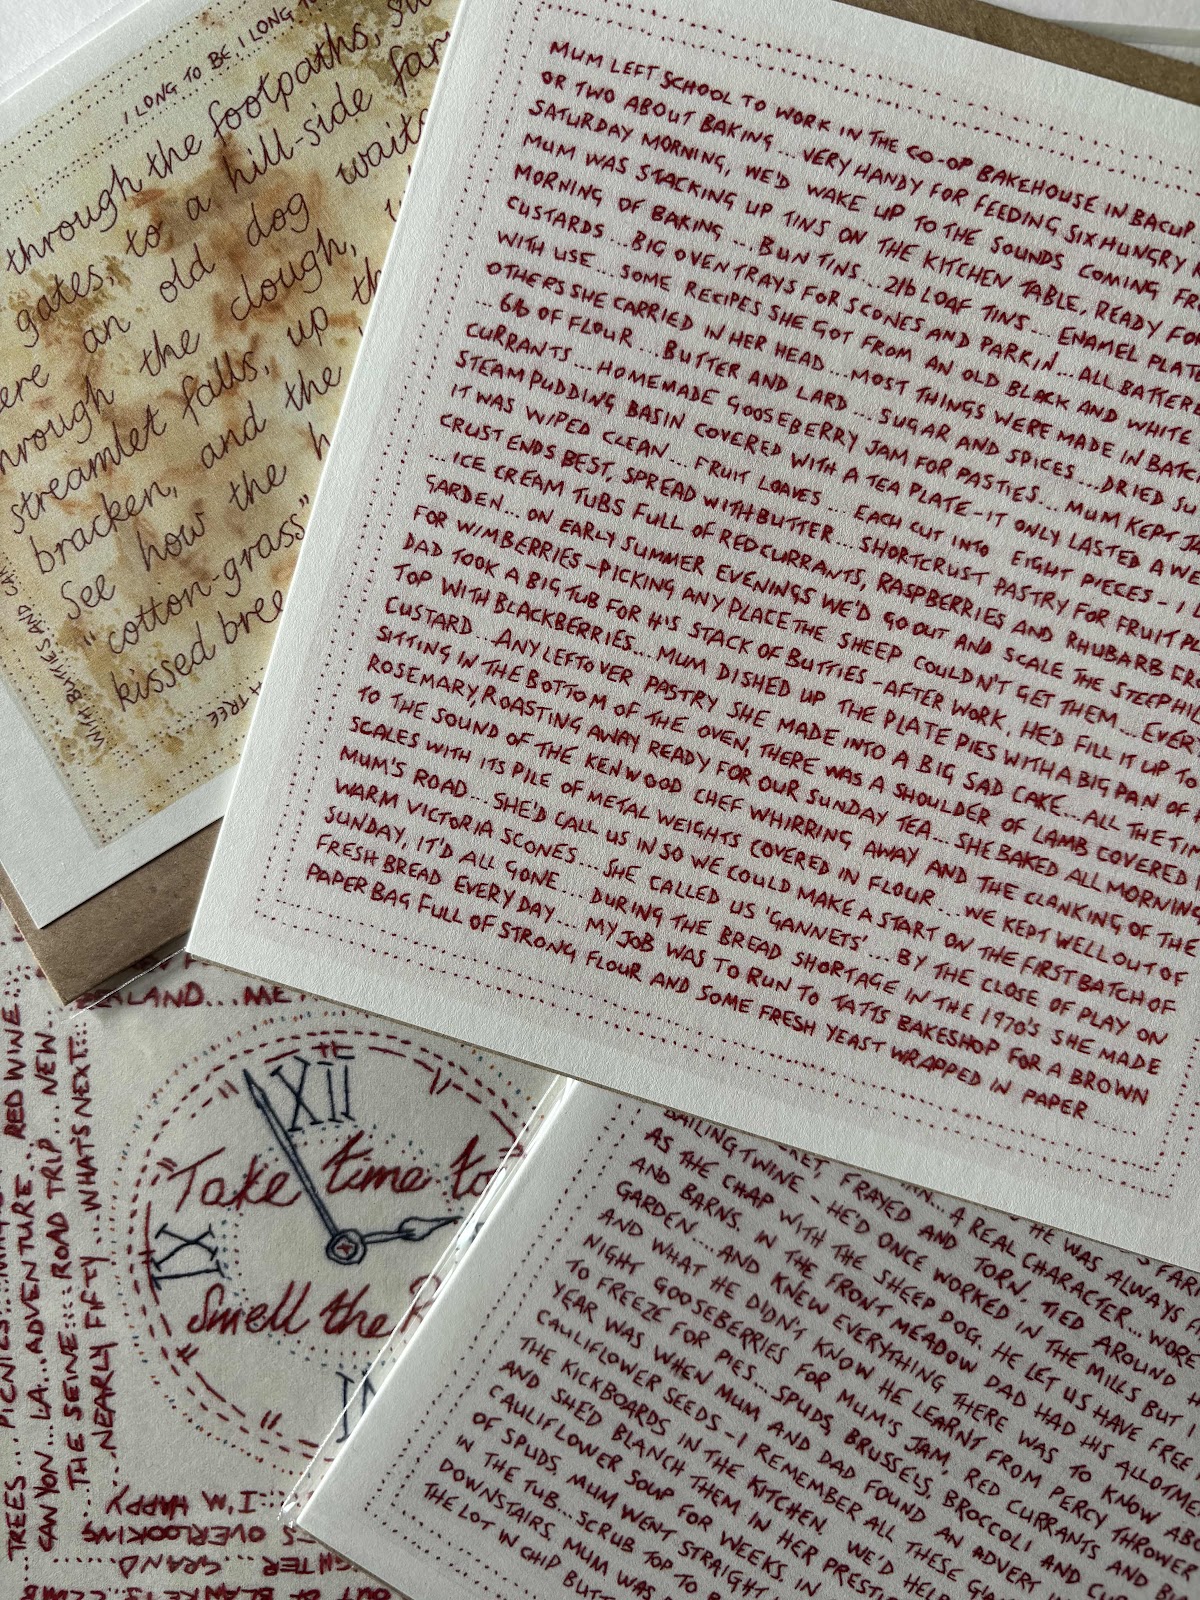 I LONG TO BE I LONG
through the footpaths,
gates, to a hill-side
an old dog
through the clough,
streamlet falls, up
bracken, and the
See how the
"cotton-grass"
kissed
WITH BUTTIES AND
TREE
MUM LEFT SCHOOL TO WORK IN THE CO-OP BAKEHOUSE IN BACUP
OR TWO ABOUT BAKING ... VERY HANDY FOR FEEDING SIX HUNGRY
SATURDAY MORNING, WE'D WAKE UP TO THE SOUNDS COMING
MUM WAS STACKING UP TINS ON THE KITCHEN TABLE, READY FOR
MORNING OF BAKING ... BUN TINS ... 2lb LOAF TINS ... ENAMEL PLATE
CUSTARDS ... BIG OVEN TRAYS FOR SCONES AND PARKIN ... ALL BATTERED
WITH USE ... SOME RECIPES SHE GOT FROM AN OLD BLACK AND WHITE
OTHERS SHE CARRIED IN HER HEAD ... MOST THINGS WERE MADE IN
... 6lb OF FLOUR ... BUTTER AND LARD ... SUGAR AND SPICES ... DRIED
CURRANTS ... HOMEMADE GOOSEBERRY JAM FOR PASTIES ... MUM KEPT
STEAM PUDDING BASIN COVERED WITH A TEA PLATE - IT ONLY LASTED A
IT WAS WIPED CLEAN ... FRUIT LOAVES ... EACH CUT INTO EIGHT PIECES - I
CRUST ENDS BEST, SPREAD WITH BUTTER ... SHORTCRUST PASTRY FOR FRUIT
... ICE CREAM TUBS FULL OF REDCURRANTS, RASPBERRIES AND RHUBARB
GARDEN ... ON EARLY SUMMER EVENINGS WE'D GO OUT AND SCALE THE STEEP
FOR WIMBERRIES - PICKING ANY PLACE THE SHEEP COULDN'T GET THEM ...
DAD TOOK A BIG TUB FOR HIS STACK OF BUTTIES - AFTER WORK, HE'D FILL IT UP TO
TOP WITH BLACKBERRIES ... MUM DISHED UP THE PLATE PIES WITH A BIG PAN OF
CUSTARD ... ANY LEFTOVER PASTRY SHE MADE INTO A BIG SAD CAKE ... ALL THE TIME
SITTING IN THE BOTTOM OF THE OVEN, THERE WAS A SHOULDER OF LAMB COVERED
ROSEMARY, ROASTING AWAY READY FOR OUR SUNDAY TEA ... SHE BAKED ALL MORNING
TO THE SOUND OF THE KENWOOD CHEF WHIRRING AWAY AND THE CLANKING OF THE
SCALES WITH ITS PILE OF METAL WEIGHTS COVERED IN FLOUR ... WE KEPT WELL OUT OF
MUM'S ROAD ... SHE'D CALL US IN SO WE COULD MAKE A START ON THE FIRST BATCH OF
WARM VICTORIA SCONES ... SHE CALLED US 'GANNETS' ... BY THE CLOSE OF PLAY ON
SUNDAY, IT'D ALL GONE ... DURING THE BREAD SHORTAGE IN THE 1970'S SHE MADE
FRESH BREAD EVERY DAY ... MY JOB WAS TO RUN TO TATTS BAKESHOP FOR A BROWN
PAPER BAG FULL OF STRONG FLOUR AND SOME FRESH YEAST WRAPPED IN PAPER
RED WINE
ADVENTURE
CANYON ... LA ... ROAD TRIP ... NEW
THE SEINE
NEARLY FIFTY ... WHAT'S NEXT
PICNICS
TREES
XII
"Take time to
IX
Smell the
I'M HAPPY
OVERLOOKING
GRAND
BAILING TWINE - HE'D ONCE WORKED IN THE MILLS BUT
FRAYED AND TORN. TIED AROUND
A REAL CHARACTER ... WORE
HE WAS ALWAYS
AS THE CHAP WITH THE SHEEP DOG. HE LET US HAVE FREE
AND BARNS. IN THE FRONT MEADOW DAD HAD HIS ALLOTMENT
GARDEN ... AND KNEW EVERYTHING THERE WAS TO KNOW
AND WHAT HE DIDN'T KNOW HE LEARNT FROM PERCY THROWER
NIGHT GOOSEBERRIES FOR MUM'S JAM, RED CURRANTS AND
TO FREEZE FOR PIES ... SPUDS, BRUSSELS, BROCCOLI AND
YEAR WAS WHEN MUM AND DAD FOUND AN ADVERT
CAULIFLOWER SEEDS - I REMEMBER ALL THESE
THE KICKBOARDS IN THE KITCHEN. WE'D HELP
AND SHE'D BLANCH THEM IN HER
CAULIFLOWER SOUP FOR WEEKS. IN
OF SPUDS. MUM WENT STRAIGHT
IN THE TUB ... SCRUB TOP TO
DOWNSTAIRS MUM WAS
THE LOT IN CHIP